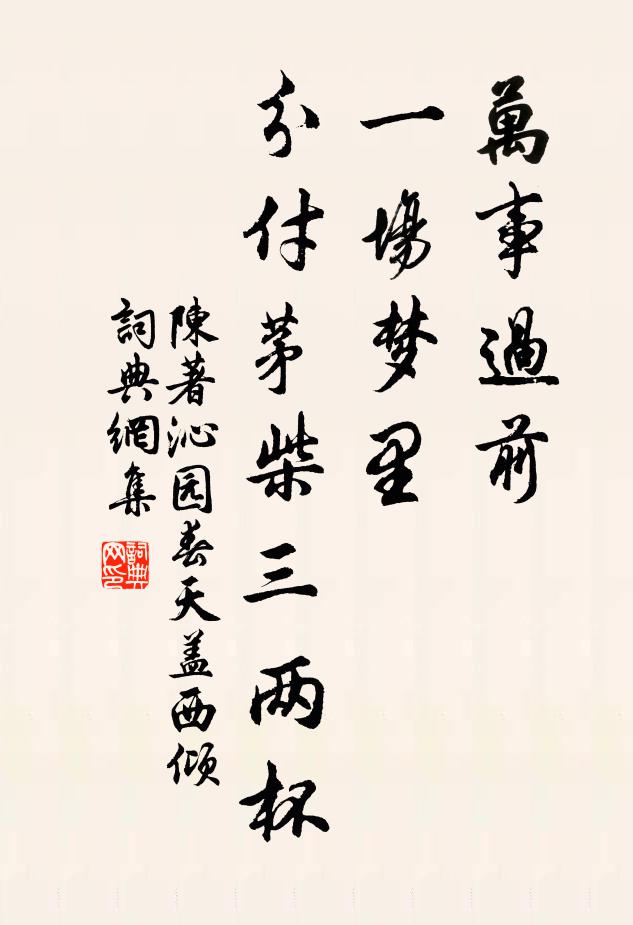 萬事過前
一場梦里
分付茅柴三两杯
陳著沁园春天盖西倾
詞典網集
詞典网印